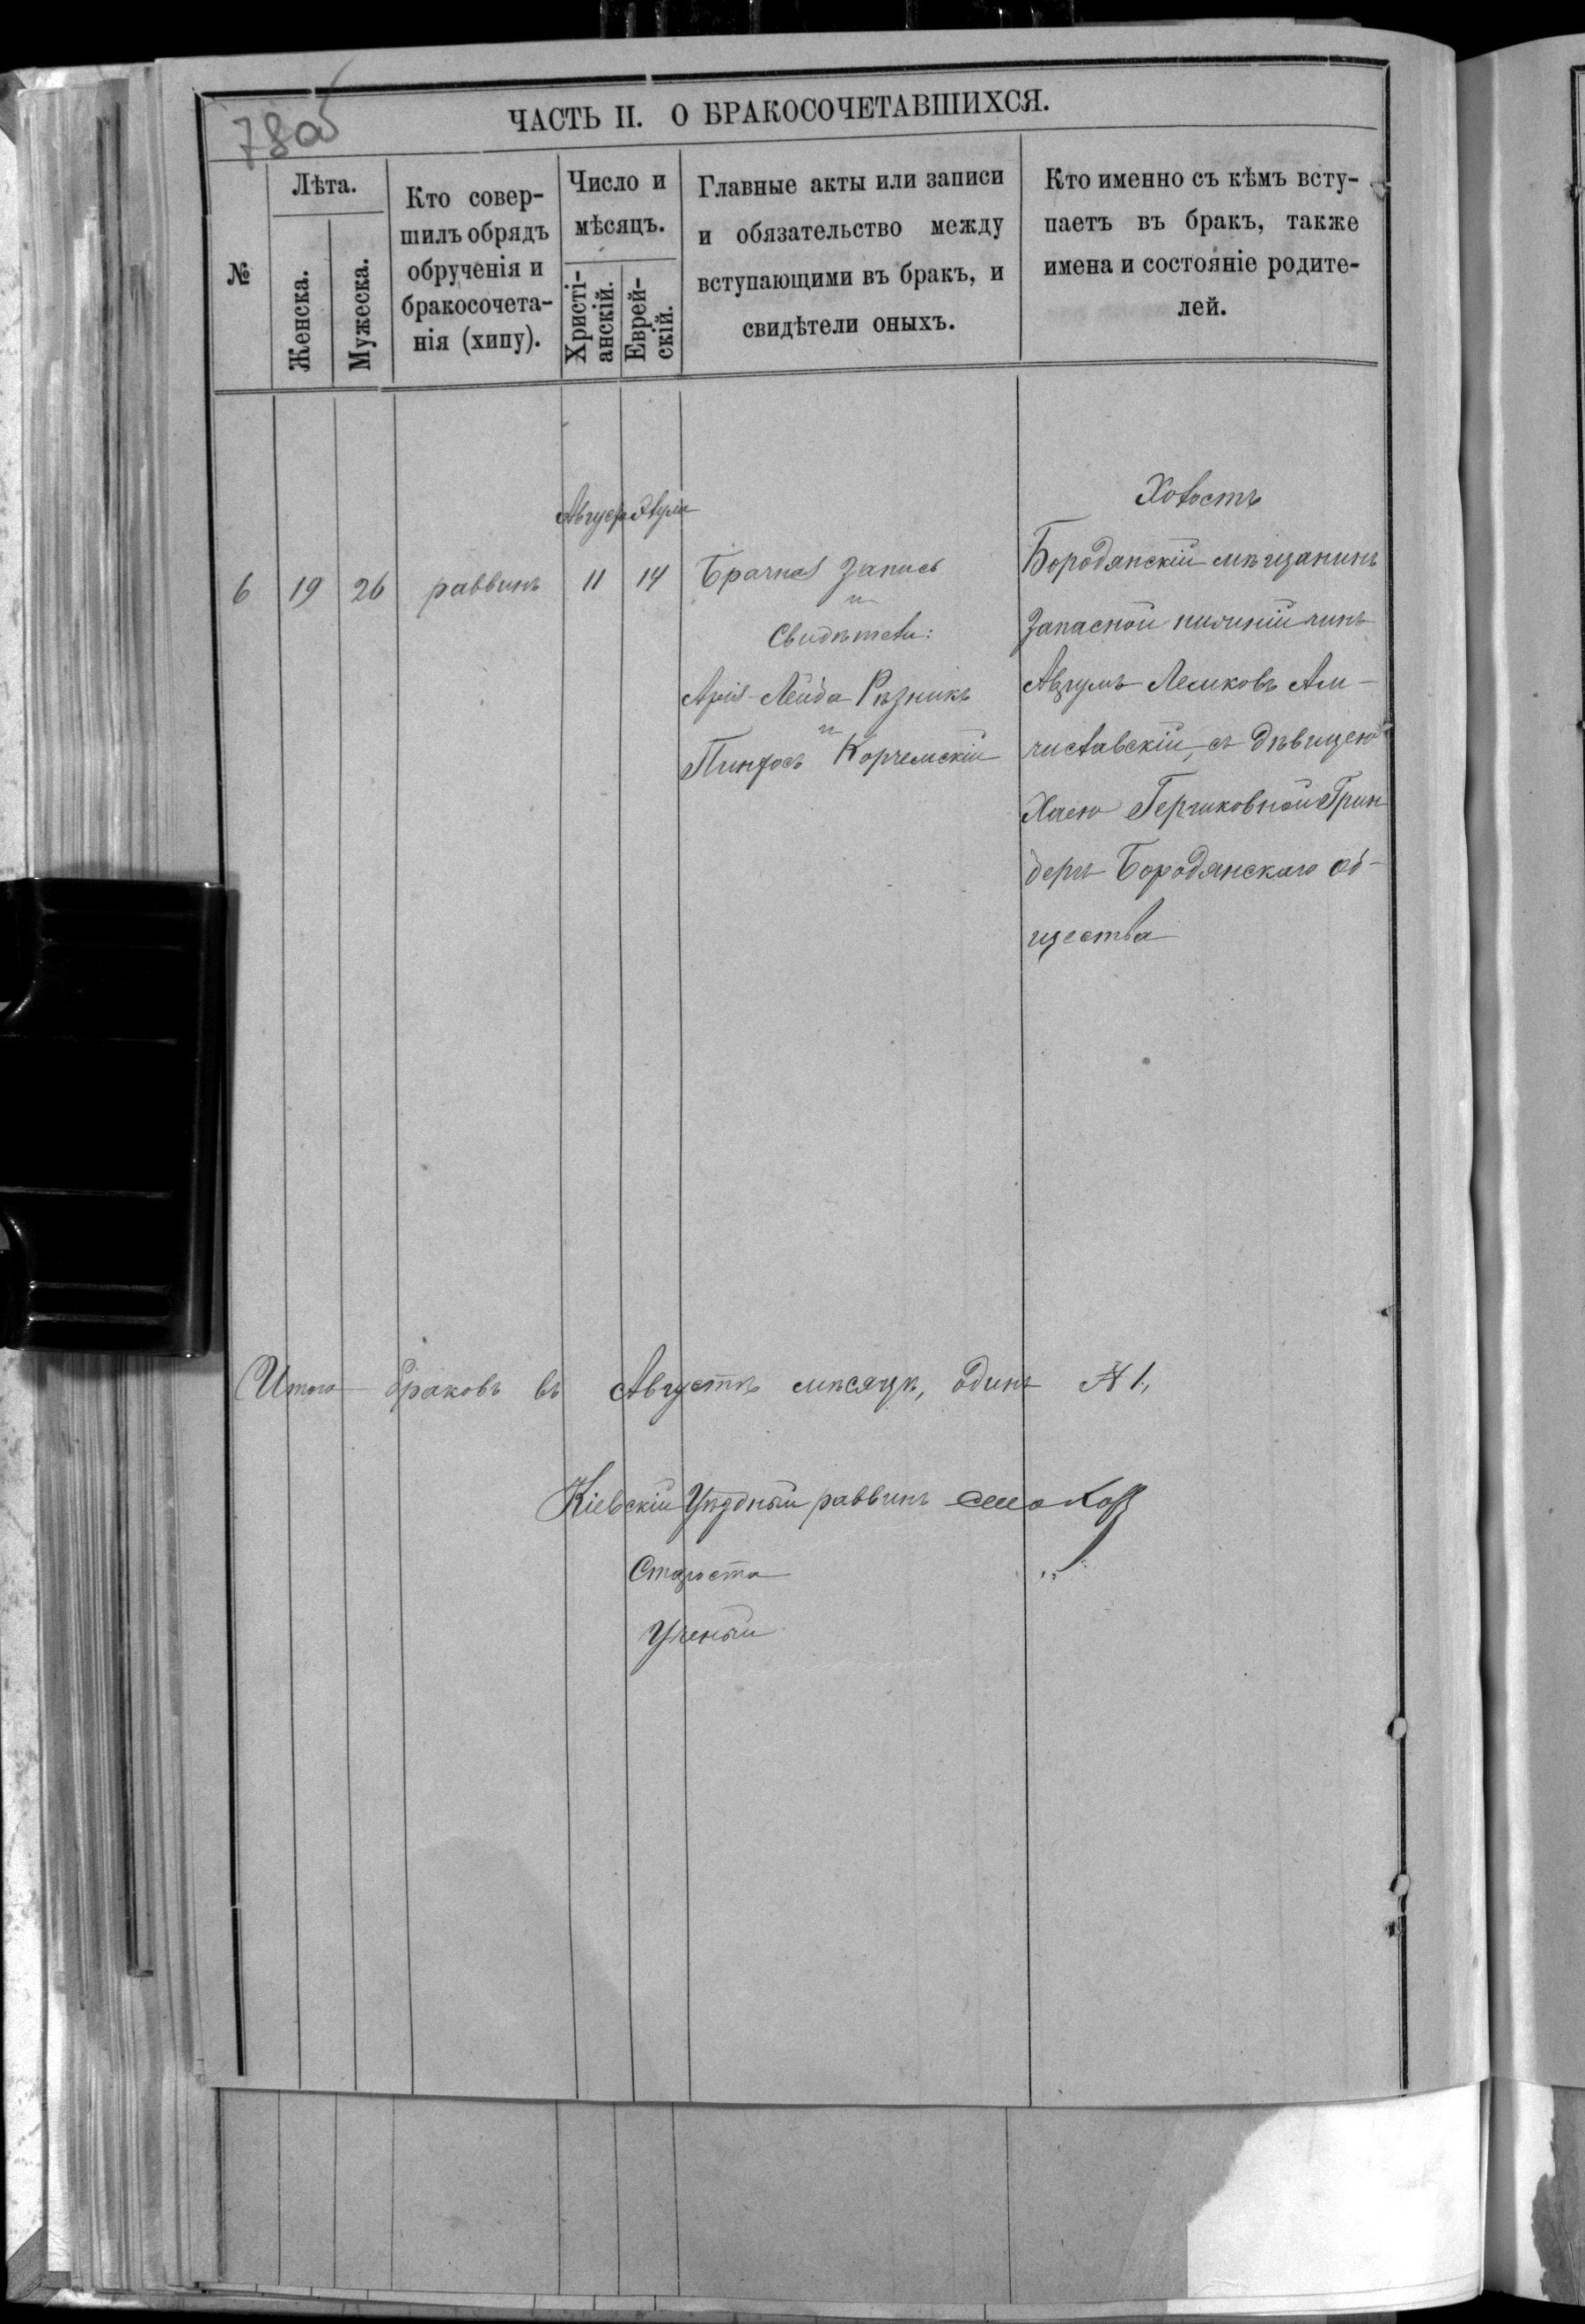 78об
ЧАСТЬ II. О БРАКОСОЧЕТАВШИХСЯ.
№
Лѣта.
Женска.
Мужеска.
Кто совер-
шилъ обрядъ
обрученія и
бракосочета-
нія (хипу).
Число и
мѣсяцъ.
Христі-
анскій.
Еврей-
скій.
Главные акты или записи
и обязательство между
вступающими въ бракъ, и
свидѣтели оныхъ.
Кто именно съ кѣмъ всту-
паетъ въ бракъ, также
имена и состояніе родите-
лей.
Август Элула
6 19 26 раввинъ 11 14
Брачная Запись
и
Свидѣтели:
Арія-Лейба Рѣзникъ
и
Пинхосъ Корчемскій
Холостъ
Бородянскій мѣщанинъ
Запасной нижній чинъ
Аврумъ Лейковъ Ам-
числавскій, съ дѣвицею
Хаею Гершковной Грин
беръ Бородянскаго об-
щества
Итого браковъ въ Августѣ мѣсяцѣ, одинъ № 1,
Кіевскій Уѣздный раввинъ
Староста
Ученый